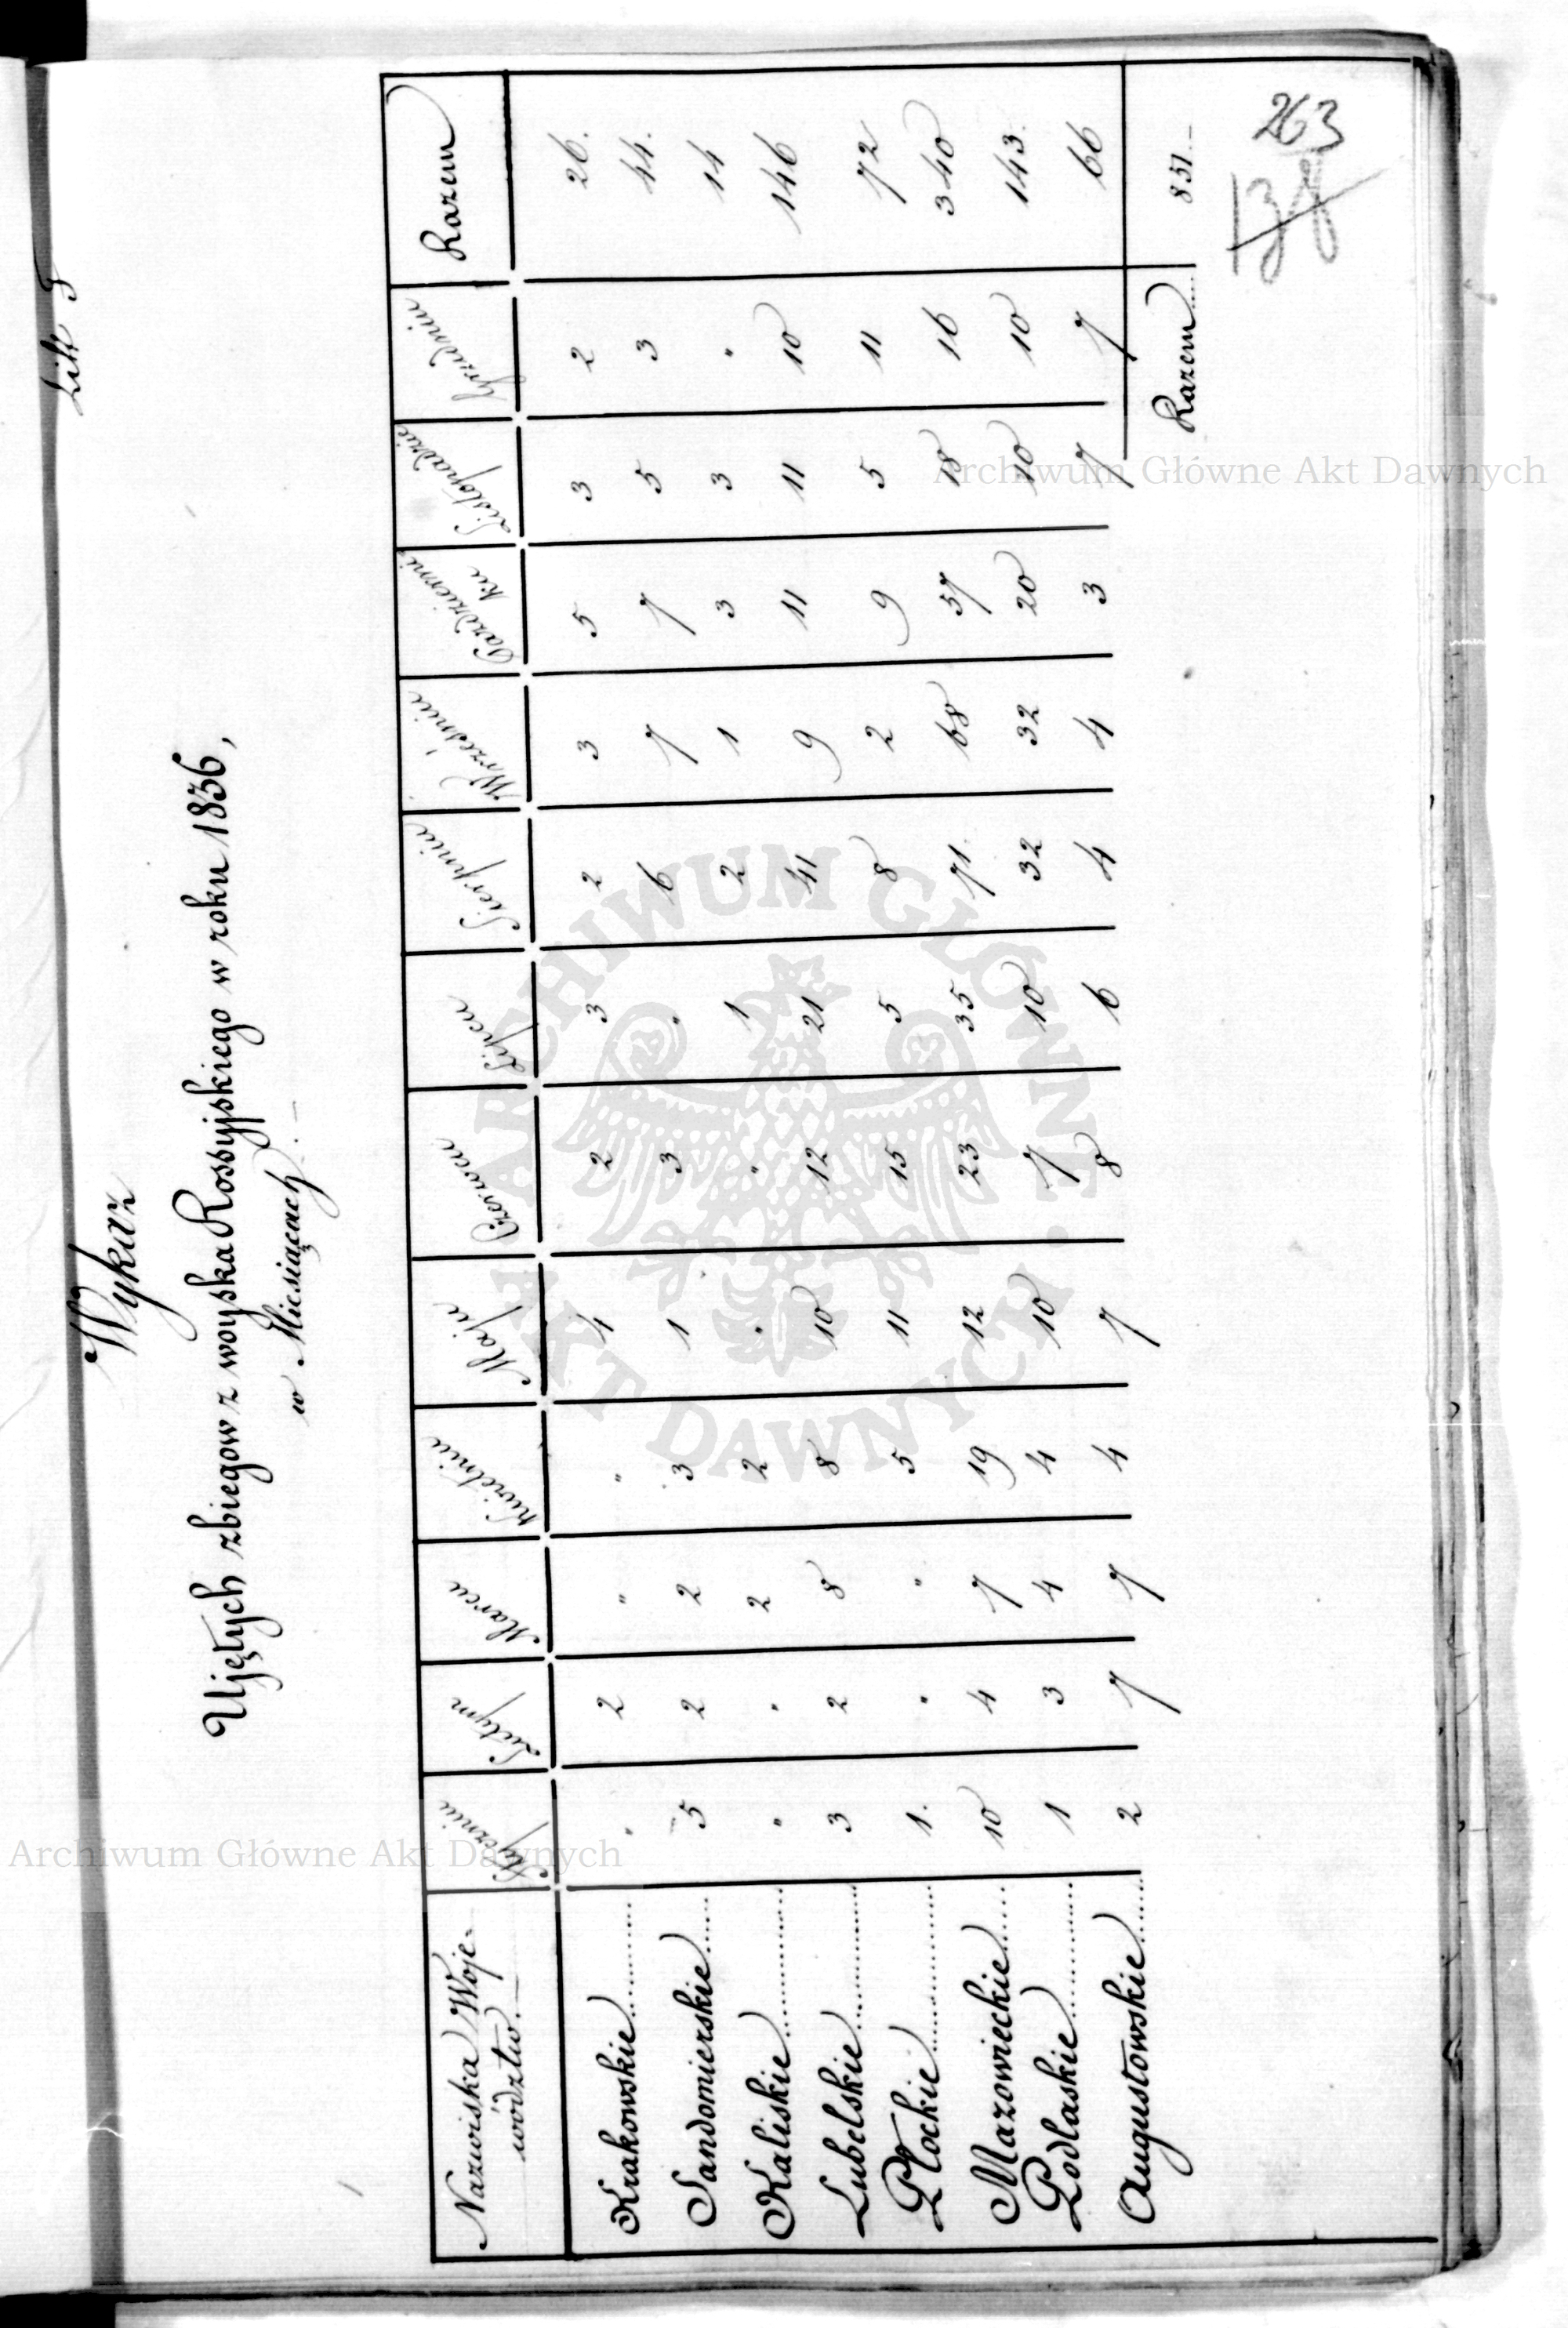 Litt G
Wykaz
Ujętych zbiegow z woyska Rossyjskiego w roku 1836,
w Miesiącach. —
Nazwiska Woje-
wództw. — Styczniu Lutym Marcu Kwietniu Maju Czerwcu Lipcu Sierpniu Wrześniu Październi Listopadzie Grudniu Razem
ku
Krakowskie " 2 " " 4 2 3 2 3 5 3 2 26.
Sandomierskie 5 2 2 3 1 3 " 6 7 7 5 3 44.
Kaliskie " " 2 2 " " 1 2 1 3 3 " 14
Lubelskie 3 2 8 8 10 12 21 41 9 11 11 10 146
Płockie 1. " " 5 11 15 5 8 2 9 5 11 72
Mazowieckie 10 4 7 19 12 23 35 71. 68 57 18 16 340
Podlaskie 1 3 4 4 10 7 10 32 32 20 10 10 143.
Augustowskie 2 7 7 4 7 8 6 4 4 3 7 7 66
Razem 851. —
263
Archiwum Główne Akt Dawnych
Archiwum Główne Akt Dawnych
ARCHIWUM GŁÓWNE AKT DAWNYCH